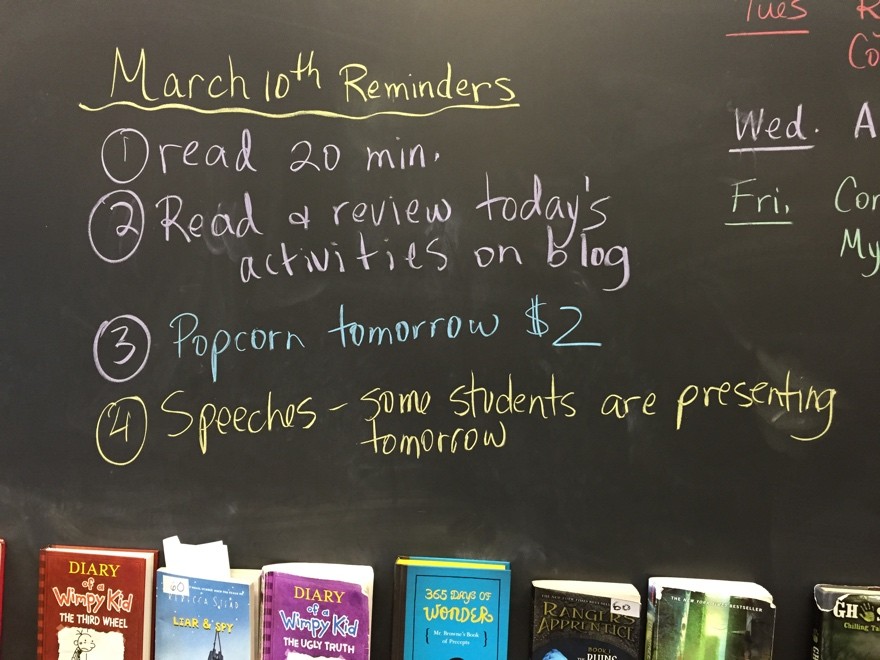 March 10th Reminders
① read 20 min.
② Read & review today's
activities on blog
③ Popcorn tomorrow $2
④ Speeches - some students are presenting
tomorrow
Tues
Wed. A
Fri.
My
DIARY
of a
Wimpy Kid
THE THIRD WHEEL
60
REBECCA STEAD
LIAR & SPY
DIARY
of a
Wimpy Kid
THE UGLY TRUTH
365 DAYS OF
WONDER
Mr. Browne's Book
of Precepts
60
RANGER'S
APPRENTICE
BOOK 1
THE RUINS
THE NEW YORK BESTSELLER
Chilling